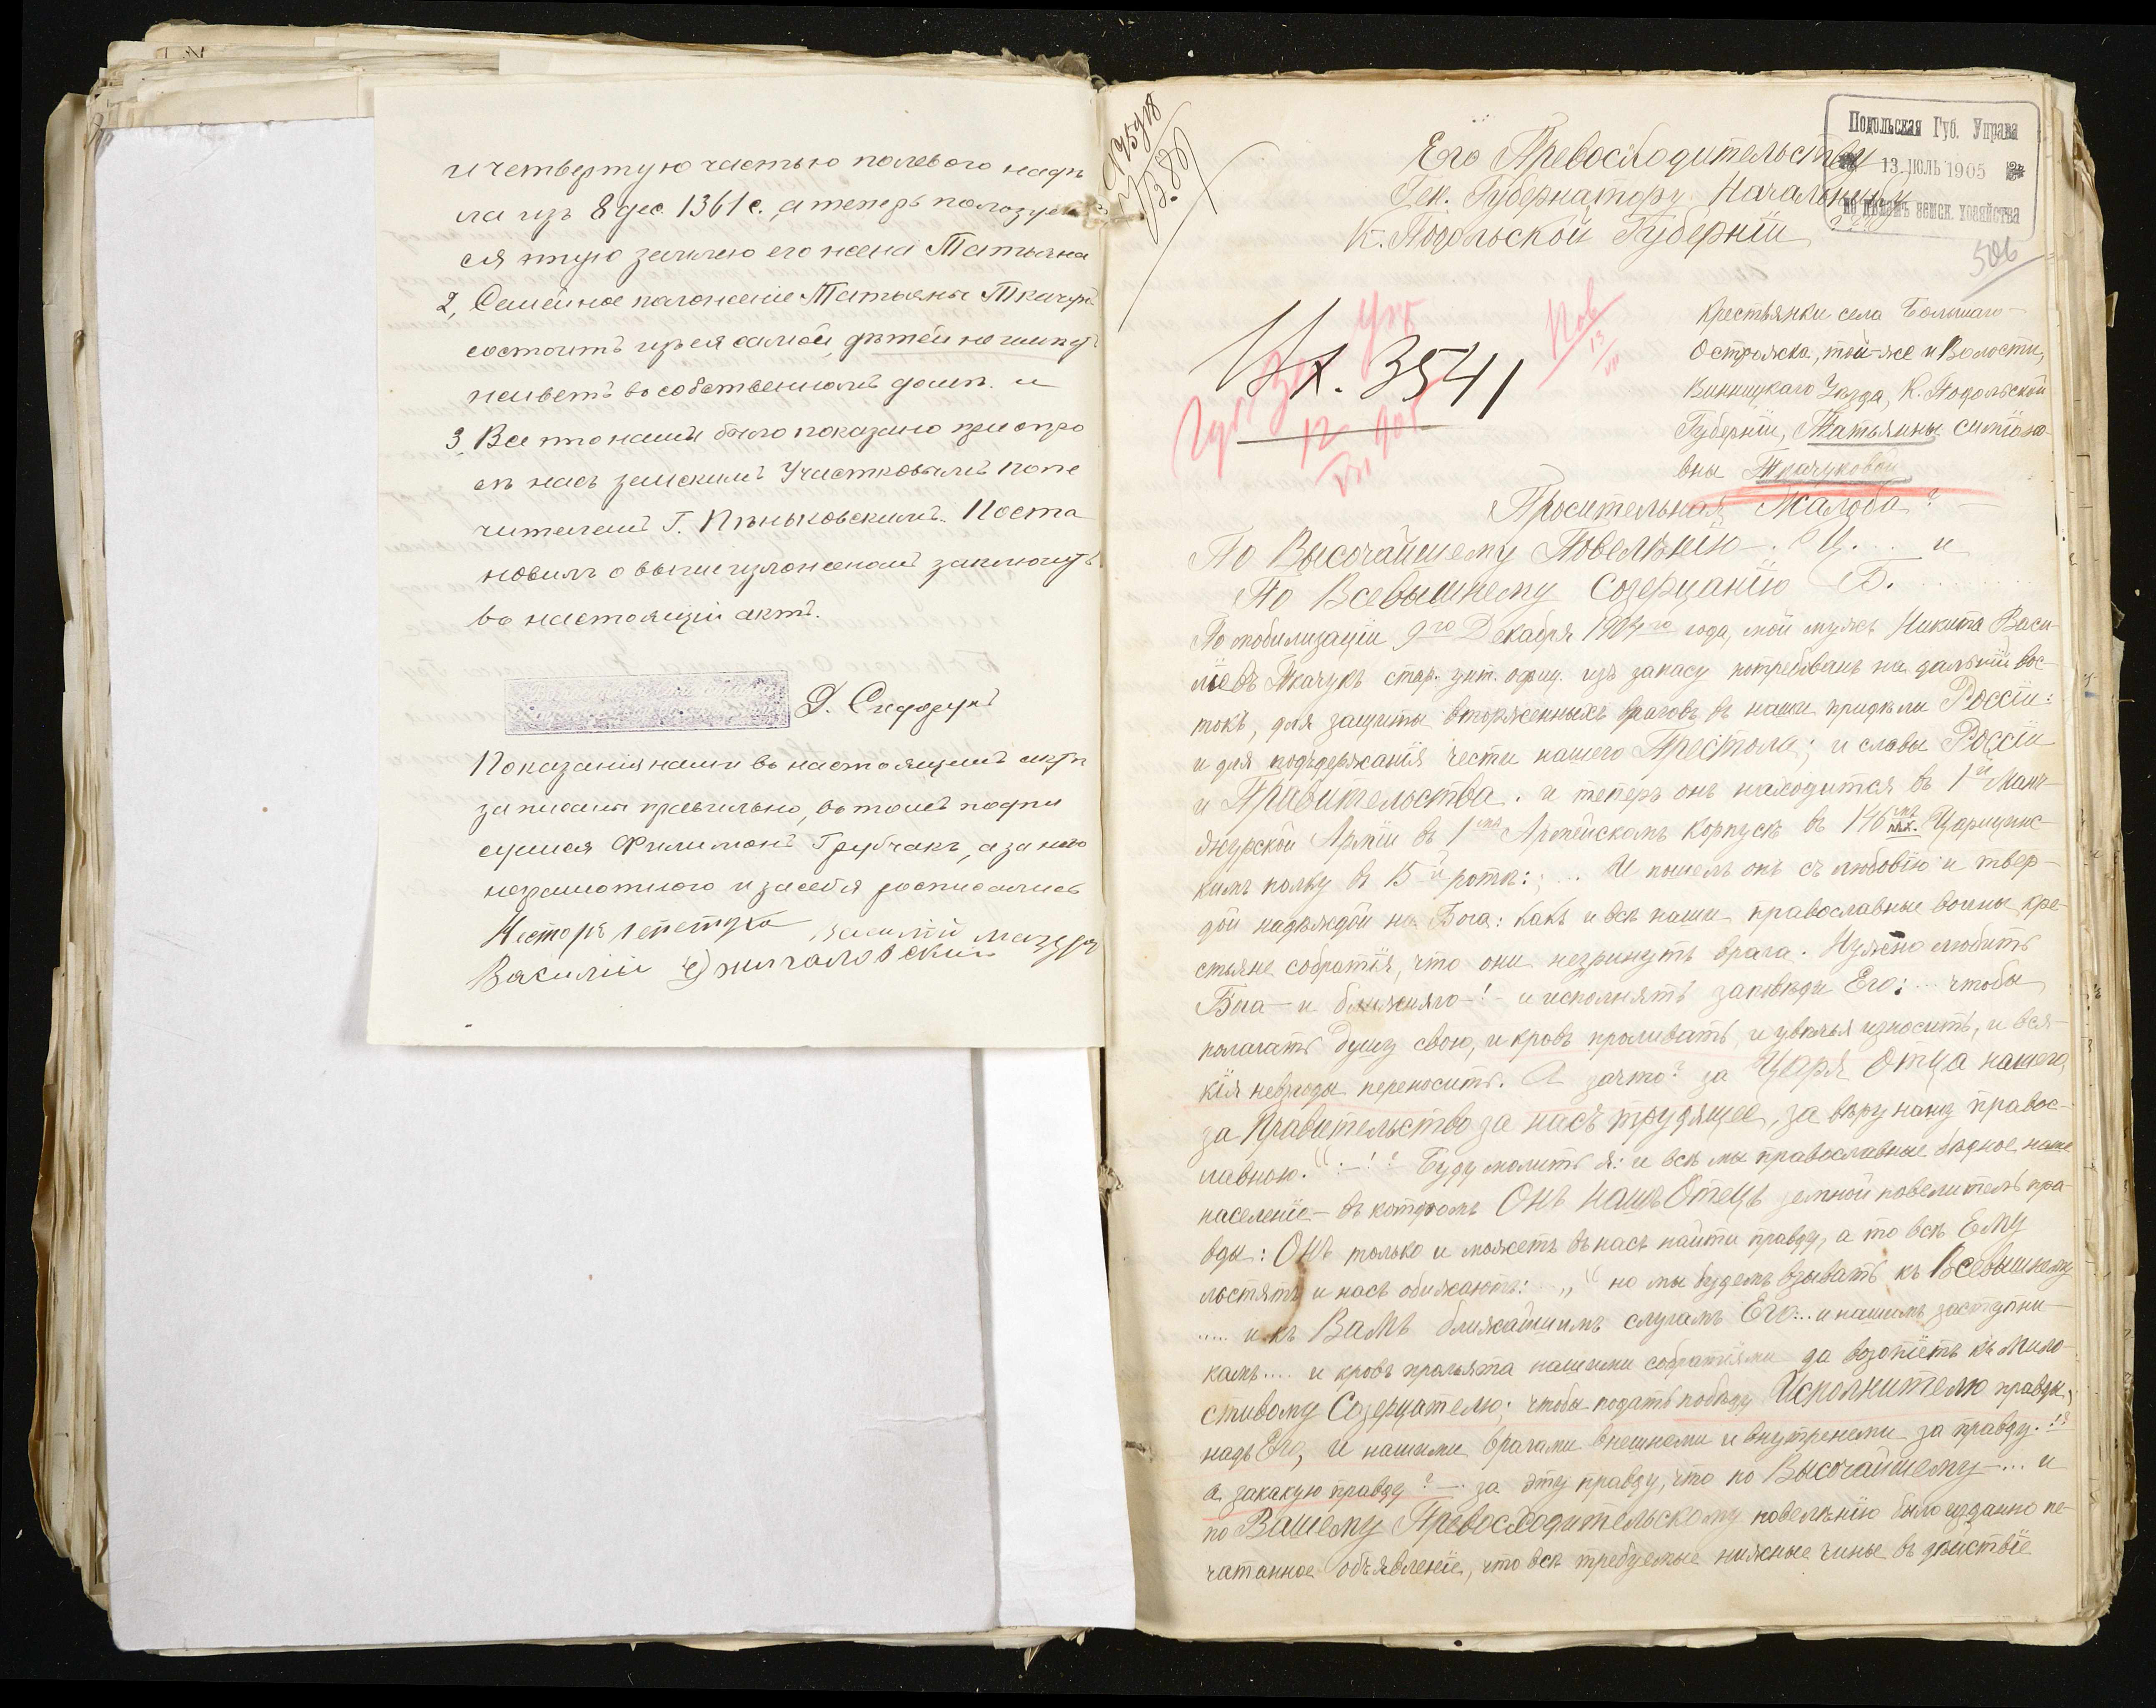 и четвертую частью полевого надѣ
ла изъ 8 дес. 1361 с. а теперь пользует
ся этую землею его жена Татьяна
2, Семейное положеніе Татьяны Ткачук
состоитъ изъ ея самой, дѣтей не имѣетъ
живетъ въ собственномъ домѣ. и
3, Все это нами было показано при опро
сѣ насъ земскимъ Участковымъ попе
чителемъ Г. Пѣньковскимъ. Поста
новилъ о вышеизложенномъ заключить
въ настоящій актъ.
Сидорукъ
Показанія наши въ настоящемъ актѣ
записаны правильно, въ томъ подпи
суемся Филимонъ Грубчакъ, а за него
неграмотного и за себя росписались
Несторъ Василій Мазур
Василій
Его Превосходительству
Ген. Губернатору Начальнику
К. Подольской Губерніи
Подольская Губ. Управа
13. ІЮЛЬ 1905
по дѣламъ земск. хозяйства
506
Вх. 3541
Крестьянки села Большаго
Остражка, той-же и Волости,
Винницкаго Уѣзда, К. Подольской
Губерніи, Татьянны Симіоно-
вны Ткачуковой
Просительная Жалоба?
По Высочайшему Повелѣнію —. Ц. ... и
По Всевышнему Созерцанію Б. ....
По мобилизаціи 9го Декабря 1904го года, мой мужъ Никита Васи-
лієвъ Ткачукъ стар. унт. офиц. изъ запасу потребованъ на дальній вос-
токъ, для защиты вторженныхъ враговъ въ наши придѣли Россіи:
и для подъдержанія чести нашего Престола; и славы Россіи
и Правительства. и теперь онъ находится въ 1й Мань-
джурской Арміи въ 1мъ Армейскомъ Корпусѣ въ 146мъ пѣх. Царицинс-
кимъ полку въ 15й ротѣ: ; ... И пошелъ онъ съ любовію и твер-
дой надѣждой на Бога: какъ и всѣ наши православные воины кре-
стьяне собратія, что они незринутъ врага. Нужно любить
Бога — и ближняго —! — и исполнять заповѣди Его: ... чтобы
полагать душу свою, и кровь проливать, и увѣчья износить, и вся-
кія невзгоды переносить. А зачто? за Царя Отца нашего,
за Правительство за насъ трудящее, за вѣру нашу правос-
лавною. Буду молить я: и всѣ мы православные бѣдное наше
населеніе — въ которомъ Онъ нашъ Отецъ земной повелитель пра-
вды: Онъ только и можетъ въ насъ найти правду, а то всѣ Ему
льстятъ и насъ обижаютъ: ... но мы будемъ взывать къ Всевышнему
..... и къ Вамъ ближайшимъ слугамъ Его ... и нашимъ заступни-
камъ .... и кровь пролыта нашими собратіями да возопіетъ къ Мило
стивому Созерцателю; чтобы подать побѣду Исполнителю правды,
надъ Его, и нашими врагами внешнеми и внутренеми за правду. !?
а закакую правду? — за эту правду, что по Высочайшему —... и
по Вашему Превосходительскому повелѣнію было изданно пе-
чатанное объявленіе, что всѣ требуемые нижные чины въ дѣйствіе